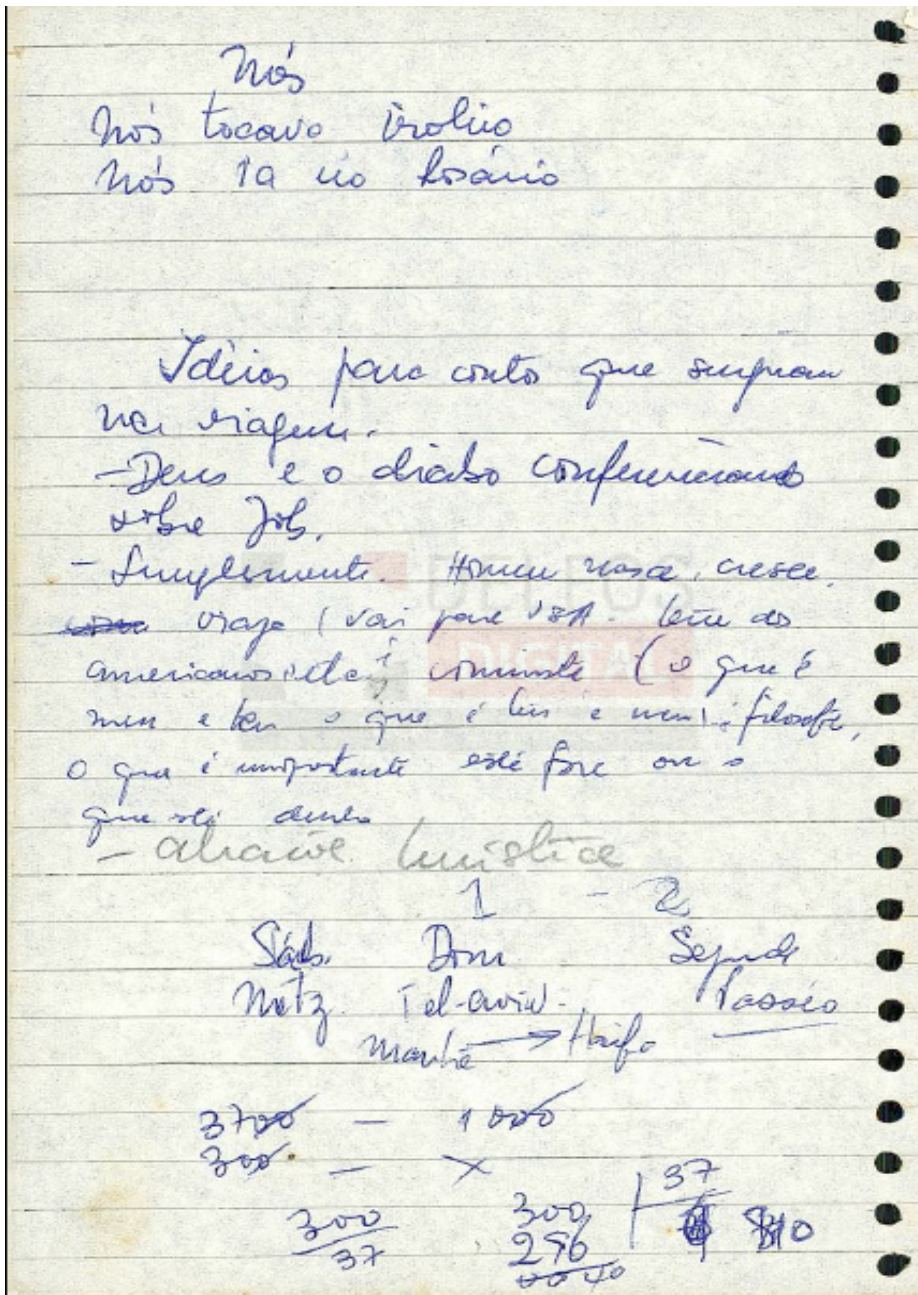 Nós
Nós tocava violino
Nós ia no Rosário
Idéias para contos que surgiram
na viagem.
- Deus e o diabo conferenciando
sôbre Job.
- Simplesmente. Homem nasce, cresce,
viaja (vai para USA. dos
americanos (o que é
mau e bem o que é bem e mau) filosofa,
o que é importante está fora ou o
que está dentro
- turística
1 - 2
Sáb. Dom Segund
Netz Tel-aviv. Passeio
Manhã → Haifa
3700 — 1000
300. — ×
300 300 37
37 296 810
0040
DELFOS
DIGITAL